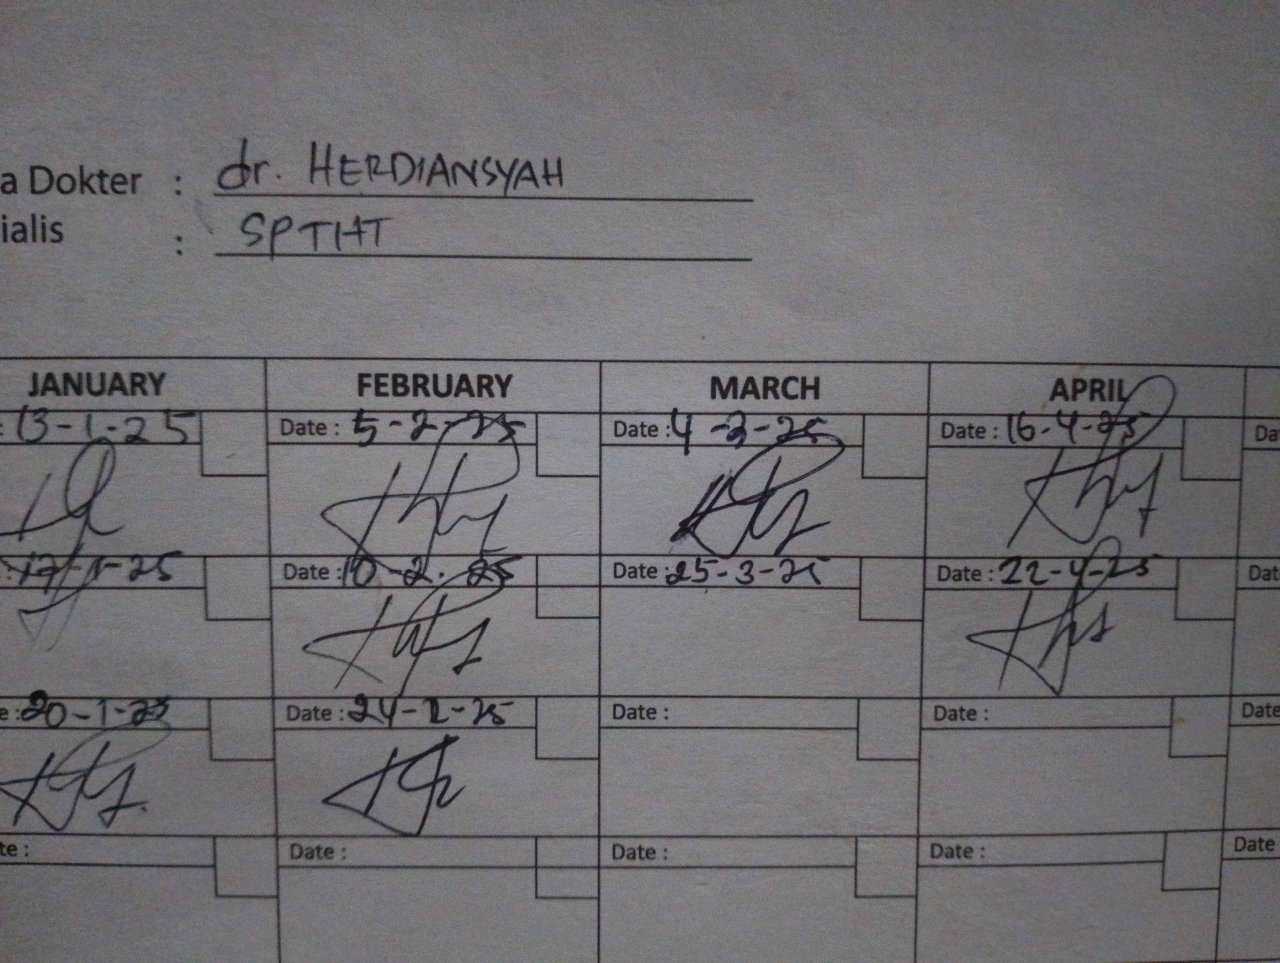 a Dokter : dr. HERDIANSYAH
ialis : SPTHT
JANUARY FEBRUARY MARCH APRIL
: 13-1-25 Date : 5-2-25 Date : 4-3-25 Date : 16-4-25 Da
: 17-1-25 Date : 10-2-25 Date : 25-3-25 Date : 22-4-25 Dat
e : 20-1-25 Date : 24-2-25 Date : Date : Date
te : Date : Date : Date : Date